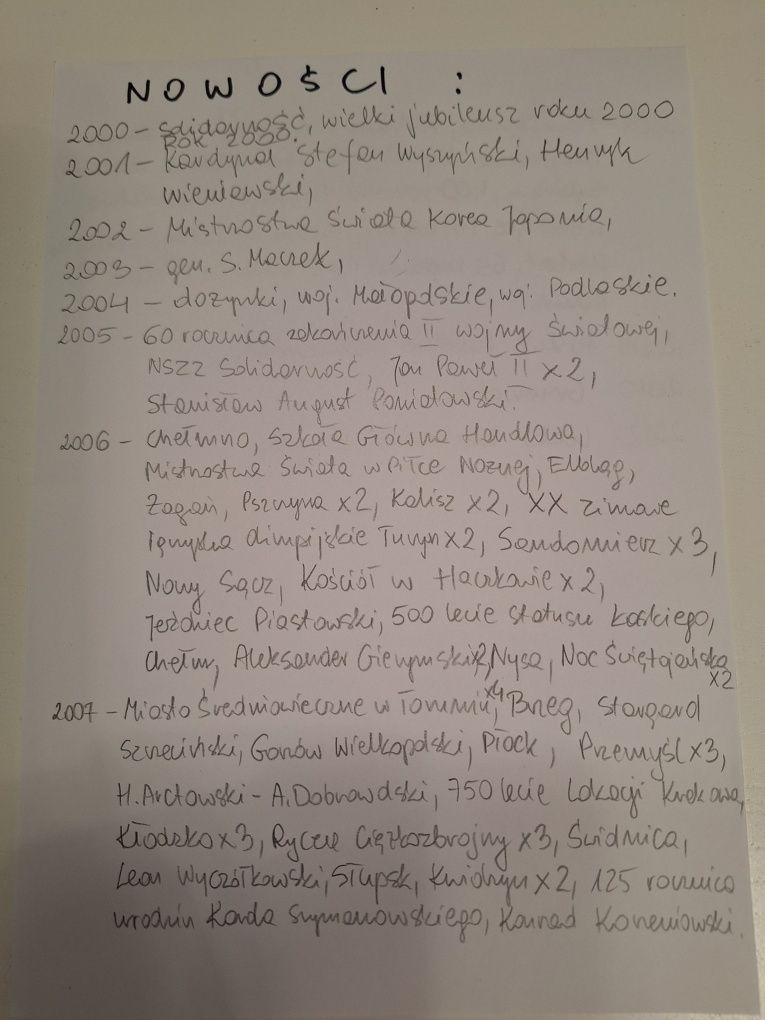 NOWOŚCI :
2000 - Solidarność, wielki jubileusz roku 2000
ROK 2000.
2001 - Kardynał Stefan Wyszyński, Henryk
Wieniawski,
2002 - Mistrzostwa Świata Korea Japonia,
2003 - gen. S. Maczek,
2004 - dożynki, woj. Małopolskie, woj. Podlaskie.
2005 - 60 rocznica zakończenia II wojny Światowej,
NSZZ Solidarność, Jan Paweł II x2,
Stanisław August Poniatowski.
2006 - Chełmno, Szkoła Główna Handlowa,
Mistrzostwa Świata w Piłce Nożnej, Elbląg,
Żagań, Pszczyna x2, Kalisz x2, XX zimowe
Igrzyska Olimpijskie Turyn x2, Sandomierz x3,
Nowy Sącz, Kościół w Haczkowie x2,
Jeździec Piastowski, 500 lecie statusu Łaskiego,
Chełm, Aleksander Gierymski x2, Nysa, Noc Świętojańska
x2
2007 - Miasto Średniowieczne w Toruniu x4, Brzeg, Stargard
Szczeciński, Gorzów Wielkopolski, Płock, Przemyśl x3,
H. Arctowski - A. Dobrowolski, 750 lecie Lokacji Krakowa,
Kłodzko x3, Rycerz Ciężkozbrojny x3, Świdnica,
Leon Wyczółkowski, Słupsk, Kwidzyn x2, 125 rocznica
urodzin Karola Szymanowskiego, Konrad Korzeniowski.